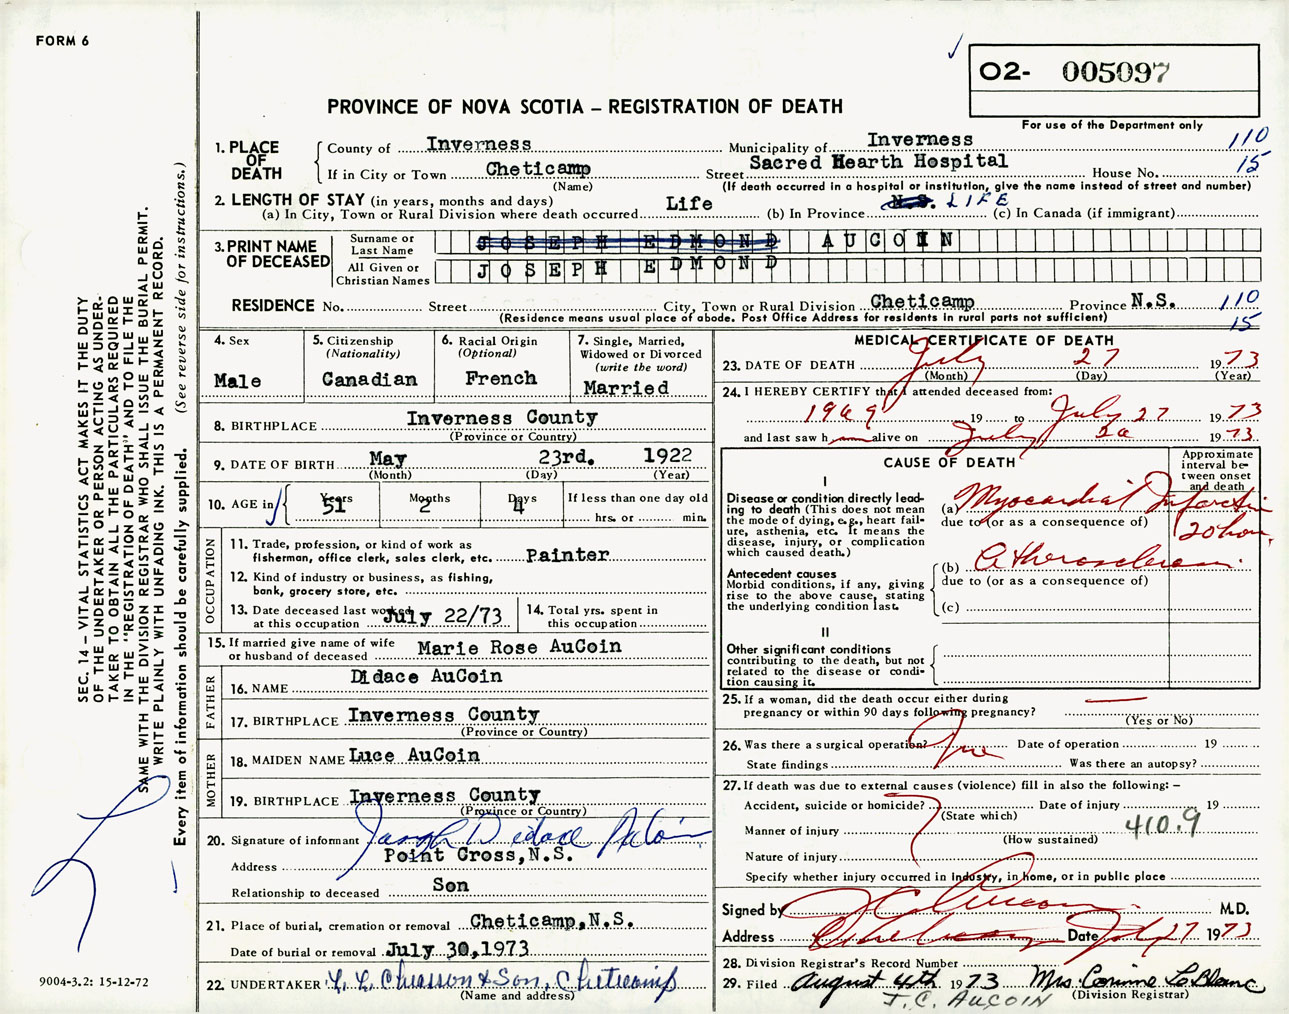 FORM 6
O2- 005097
PROVINCE OF NOVA SCOTIA – REGISTRATION OF DEATH
For use of the Department only
1. PLACE OF DEATH
County of Inverness Municipality of Inverness 110
If in City or Town Cheticamp Street Sacred Hearth Hospital House No. 15
(Name) (If death occurred in a hospital or institution, give the name instead of street and number)
2. LENGTH OF STAY (in years, months and days)
(a) In City, Town or Rural Division where death occurred Life (b) In Province N.S. LIFE (c) In Canada (if immigrant)
3. PRINT NAME OF DECEASED
Surname or Last Name JOSEPH EDMOND AUCOIN
All Given or Christian Names JOSEPH EDMOND
RESIDENCE No. Street City, Town or Rural Division Cheticamp Province N.S. 110
(Residence means usual place of abode. Post Office Address for residents in rural parts not sufficient) 15
4. Sex
Male
5. Citizenship
(Nationality)
Canadian
6. Racial Origin
(Optional)
French
7. Single, Married,
Widowed or Divorced
(write the word)
Married
8. BIRTHPLACE Inverness County
(Province or Country)
9. DATE OF BIRTH May 23rd. 1922
(Month) (Day) (Year)
10. AGE in Years 51 Months 2 Days 4 If less than one day old
hrs. or min.
OCCUPATION
11. Trade, profession, or kind of work as
fisherman, office clerk, sales clerk, etc. Painter
12. Kind of industry or business, as fishing,
bank, grocery store, etc.
13. Date deceased last worked
at this occupation July 22/73
14. Total yrs. spent in
this occupation
15. If married give name of wife
or husband of deceased Marie Rose AuCoin
FATHER
16. NAME Didace AuCoin
17. BIRTHPLACE Inverness County
(Province or Country)
MOTHER
18. MAIDEN NAME Luce AuCoin
19. BIRTHPLACE Inverness County
(Province or Country)
20. Signature of informant Joseph Didace AuCoin
Address Point Cross, N.S.
Relationship to deceased Son
21. Place of burial, cremation or removal Cheticamp, N.S.
Date of burial or removal July 30, 1973
22. UNDERTAKER L. L. Chiasson & Son, Cheticamp
(Name and address)
MEDICAL CERTIFICATE OF DEATH
23. DATE OF DEATH July 27 1973
(Month) (Day) (Year)
24. I HEREBY CERTIFY that I attended deceased from:
1969 19 to July 27 1973
and last saw h alive on July 1973
CAUSE OF DEATH
Approximate interval between onset and death
I
Disease or condition directly lead-
ing to death (This does not mean
the mode of dying, e.g., heart fail-
ure, asthenia, etc. It means the
disease, injury, or complication
which caused death.)
(a) Myocardial Infarction
due to (or as a consequence of)
20 hour
Antecedent causes
Morbid conditions, if any, giving
rise to the above cause, stating
the underlying condition last.
(b) Atherosclerosis
due to (or as a consequence of)
(c)
II
Other significant conditions
contributing to the death, but not
related to the disease or condi-
tion causing it.
25. If a woman, did the death occur either during
pregnancy or within 90 days following pregnancy?
(Yes or No)
26. Was there a surgical operation? Date of operation 19
State findings Was there an autopsy?
27. If death was due to external causes (violence) fill in also the following: –
Accident, suicide or homicide? Date of injury 19
(State which)
Manner of injury 410.9
(How sustained)
Nature of injury
Specify whether injury occurred in Industry, in home, or in public place
Signed by J C Aucoin M.D.
Address Cheticamp Date July 27 1973
28. Division Registrar's Record Number
29. Filed August 4th 1973 Mrs. Corinne LeBlanc
J.C. AUCOIN (Division Registrar)
SEC. 14 – VITAL STATISTICS ACT MAKES IT THE DUTY
OF THE UNDERTAKER OR PERSON ACTING AS UNDER-
TAKER TO OBTAIN ALL THE PARTICULARS REQUIRED
IN THE "REGISTRATION OF DEATH" AND TO FILE THE
SAME WITH THE DIVISION REGISTRAR WHO SHALL ISSUE THE BURIAL PERMIT.
WRITE PLAINLY WITH UNFADING INK. THIS IS A PERMANENT RECORD.
Every item of information should be carefully supplied. (See reverse side for instructions.)
9004-3.2: 15-12-72